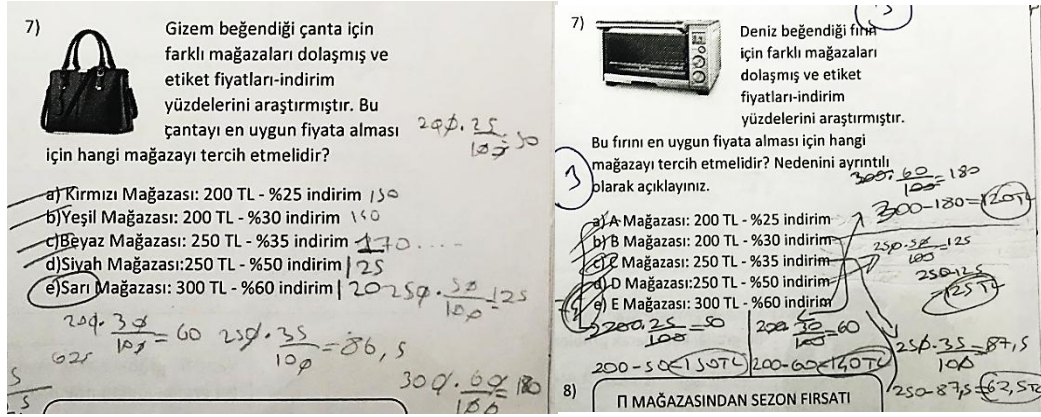 7)
Gizem beğendiği çanta için
farklı mağazaları dolaşmış ve
etiket fiyatları-indirim
yüzdelerini araştırmıştır. Bu
çantayı en uygun fiyata alması
için hangi mağazayı tercih etmelidir?
200.25/100=50
a) Kırmızı Mağazası: 200 TL - %25 indirim 150
b)Yeşil Mağazası: 200 TL - %30 indirim 140
c)Beyaz Mağazası: 250 TL - %35 indirim 170....
d)Siyah Mağazası:250 TL - %50 indirim 125
e)Sarı Mağazası: 300 TL - %60 indirim 120
250.50/100=125
200.30/100=60
250.35/100=86,5
625
300.60/100=180
7)
Deniz beğendiği fırın
için farklı mağazaları
dolaşmış ve etiket
fiyatları-indirim
yüzdelerini araştırmıştır.
Bu fırını en uygun fiyata alması için hangi
mağazayı tercih etmelidir? Nedenini ayrıntılı
olarak açıklayınız.
3
300.60/100=180
300-180=120TL
a) A Mağazası: 200 TL - %25 indirim
b) B Mağazası: 200 TL - %30 indirim
c) C Mağazası: 250 TL - %35 indirim
d) D Mağazası:250 TL - %50 indirim
e) E Mağazası: 300 TL - %60 indirim
250.50/100=125
250-125
=125TL
200.25/100=50
200-50=150TL
200.30/100=60
200-60=140TL
250.35/100=87,5
250-87,5=62,5TL
8)
П MAĞAZASINDAN SEZON FIRSATI